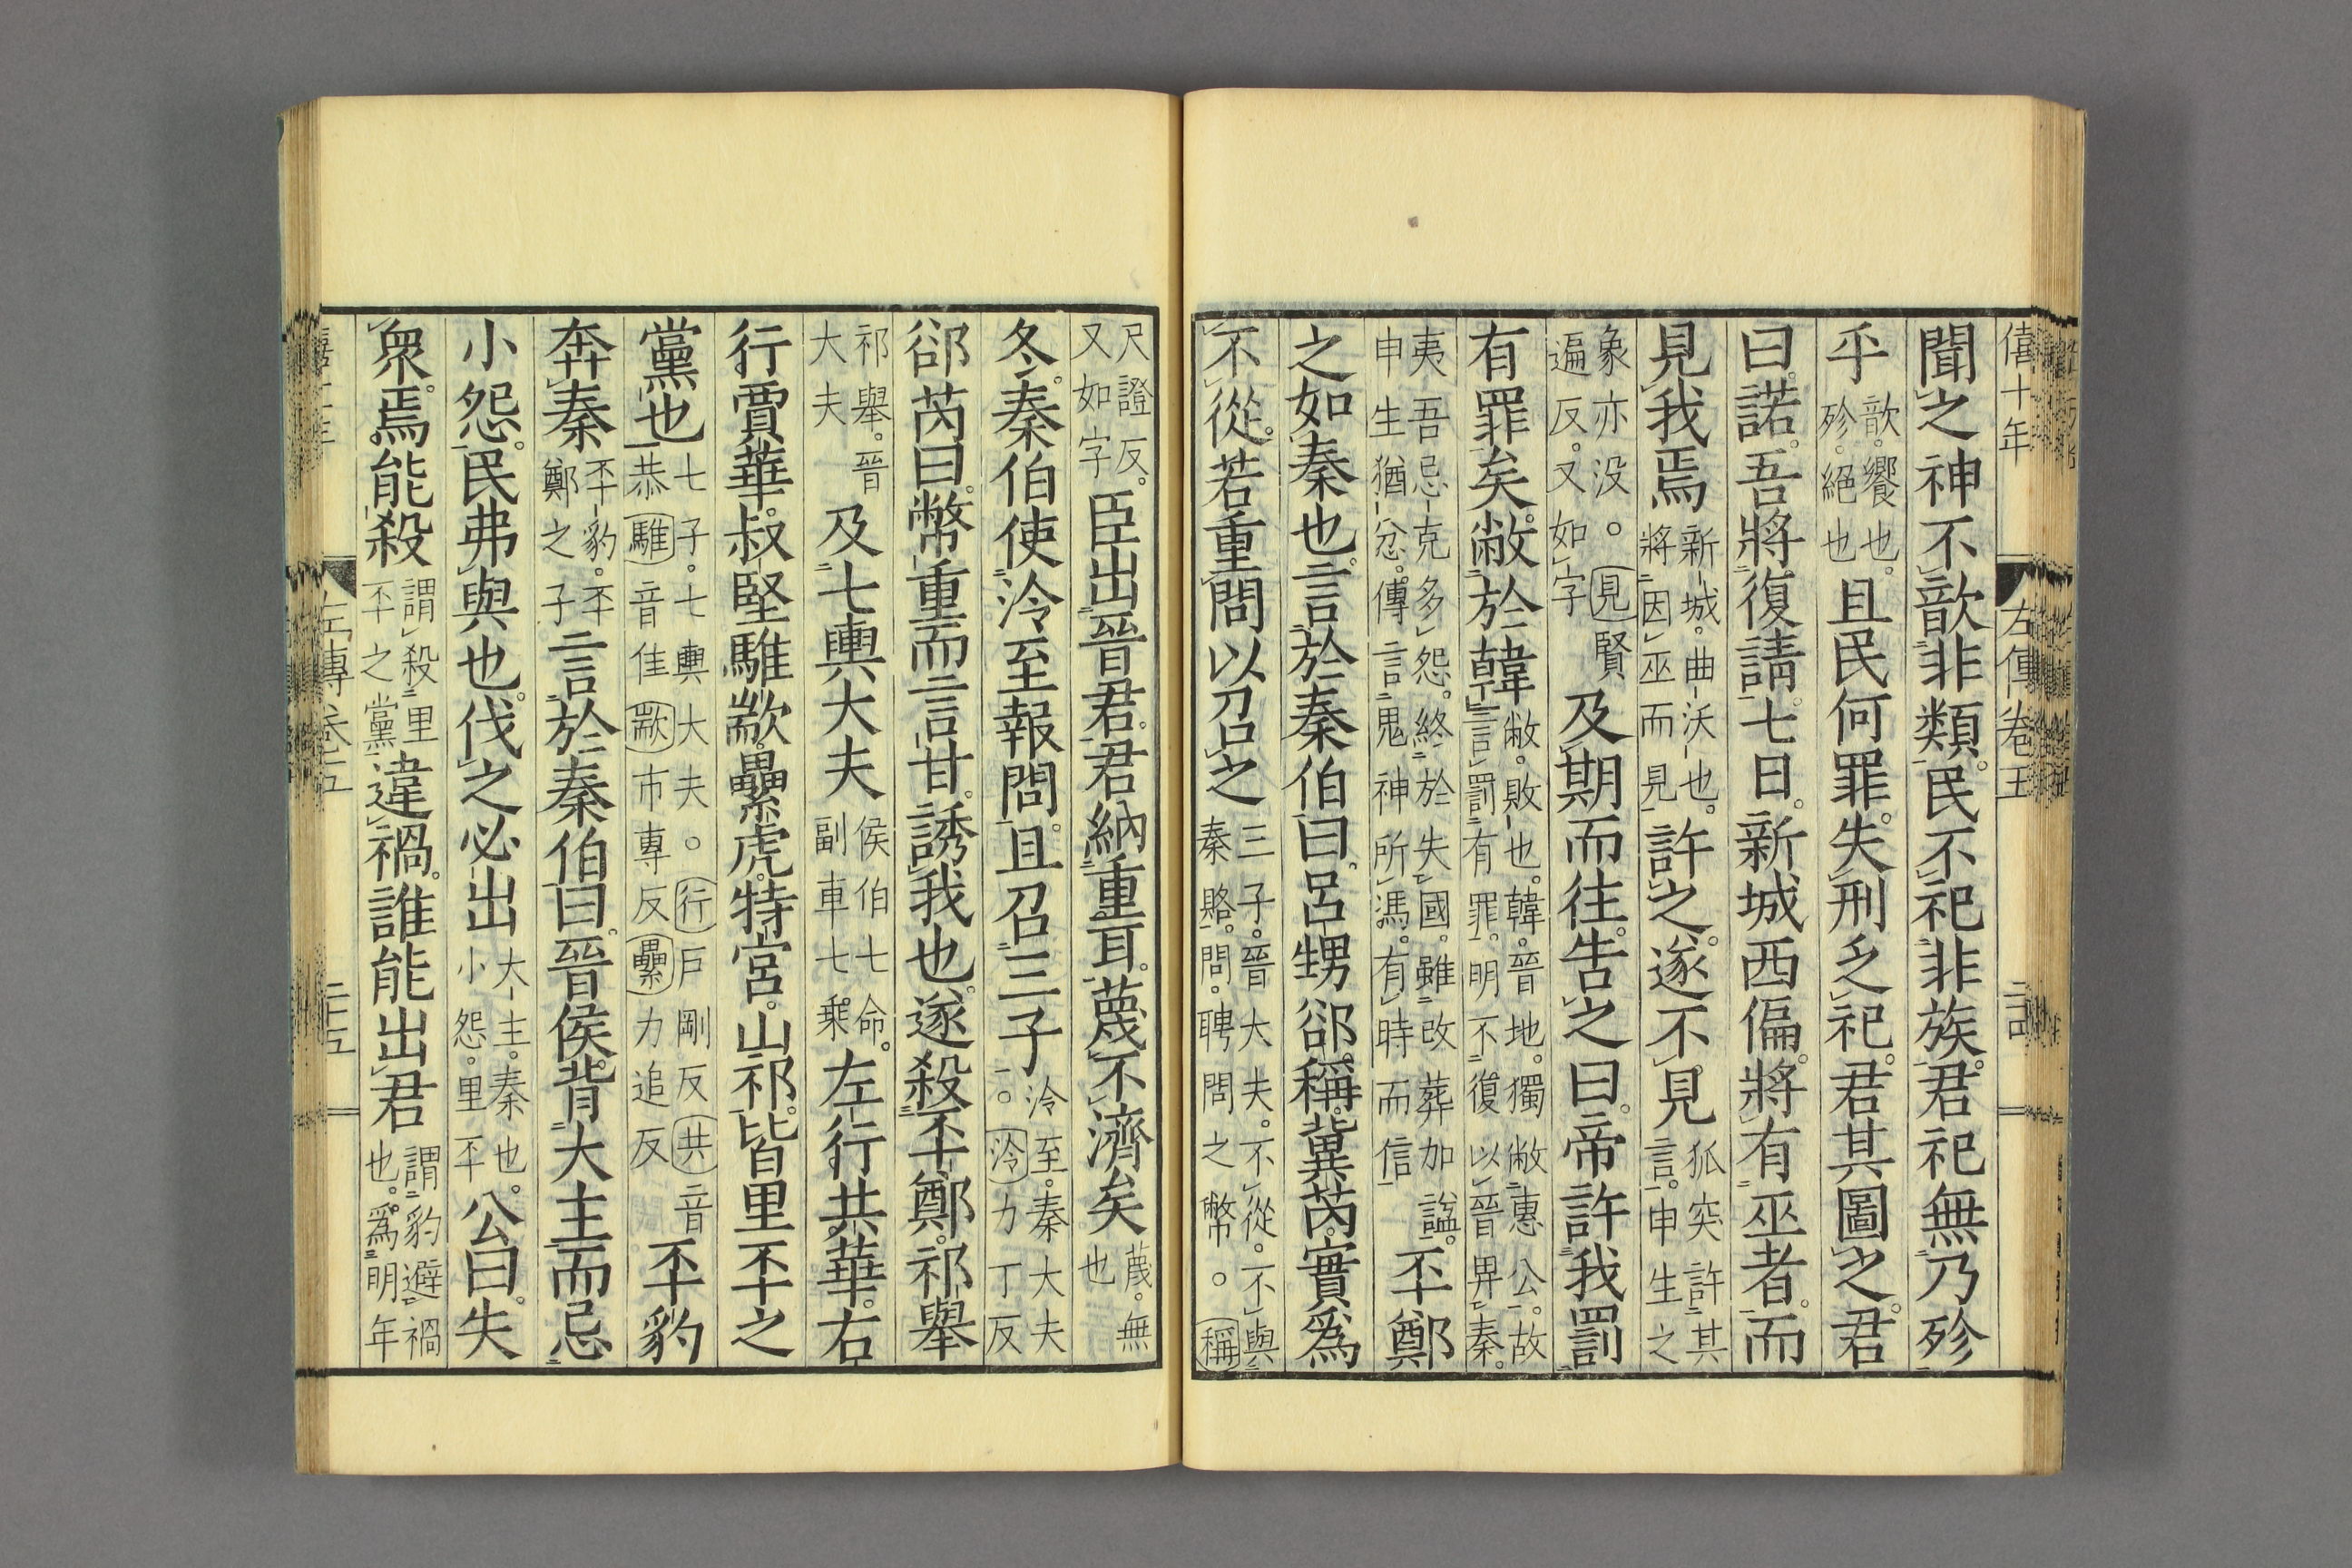 僖十年 左傳卷五
聞之神不歆非類。民不祀非族。君祀無乃殄
乎歆。饗也。殄。絕也且民何罪。失刑乏祀。君其圖之。君
曰。諾。吾將復請。七日。新城西偏。將有巫者。而
見我焉新城。曲沃也。將因巫而見許之。遂不見狐突許其言。申生之
象亦没。○見賢遍反。又如字及期而往。告之曰。帝許我罰
有罪矣。敝於韓敝。敗也。韓。晉地。獨敝惠公。故言罰有罪。明不復以晉畀秦。
夷吾忌克多怨。終於失國。雖改葬加謚。申生猶忿。傳言鬼神所馮。有時而信丕鄭
之如秦也。言於秦伯曰。呂甥郤稱。冀芮。實爲
不從。若重問以召之三子。晉大夫。不從。不與秦賂。問。聘問之幣。○稱
尺證反。又如字臣出晉君。君納重耳。蔑不濟矣蔑。無也
冬。秦伯使泠至報問。且召三子泠至。秦大夫。○泠力丁反
郤芮曰。幣重而言甘。誘我也。遂殺丕鄭。祁舉
祁舉。晉大夫及七輿大夫侯伯七命。副車七乘左行共華。右
行賈華。叔堅騅歂。纍虎。特宮。山祁。皆里丕之
黨也七子。七輿大夫。○行戶剛反共音恭騅音佳歂市專反纍力追反丕豹
奔秦丕豹。丕鄭之子言於秦伯曰。晉侯背大主而忌
小怨。民弗與也。伐之必出大主。秦也。小怨。里丕公曰。失
衆。焉能殺謂殺里丕之黨違禍。誰能出君謂豹避禍也。爲明年
左傳卷五 二十五